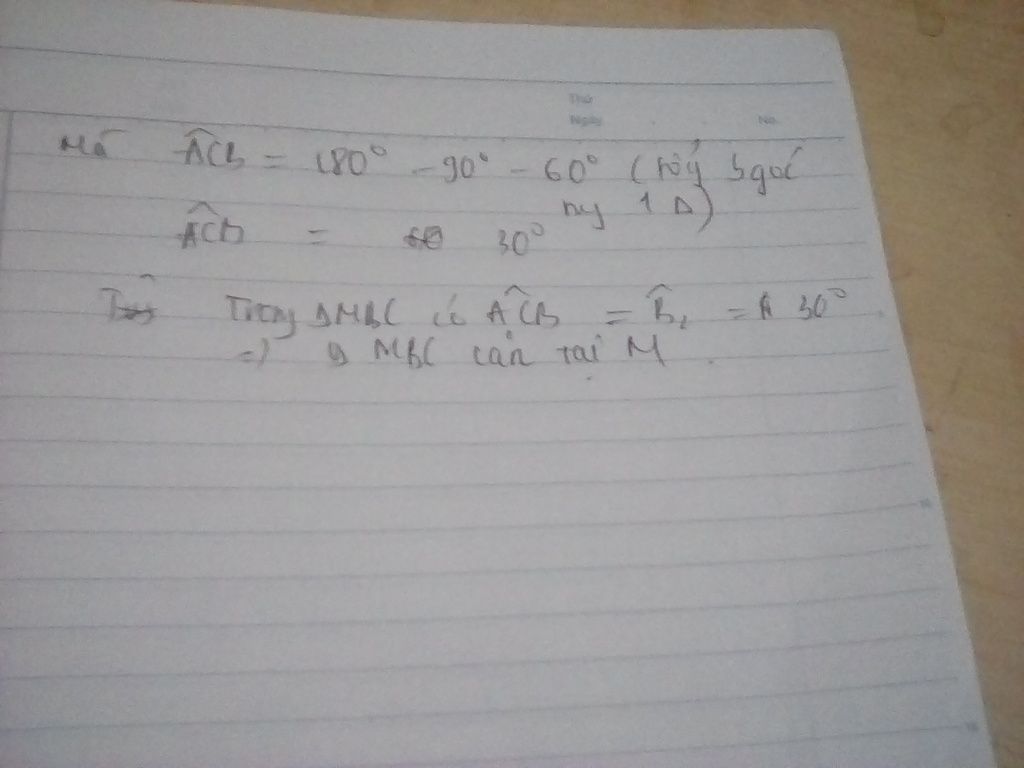 Thứ
Ngày No.
Mà ACB = 180° - 90° - 60° (tổng 3 góc
1 Δ)
ACB = 30°
Trong ΔMBC có ACB = B₁ = 30°
=) Δ MBC cân tại M